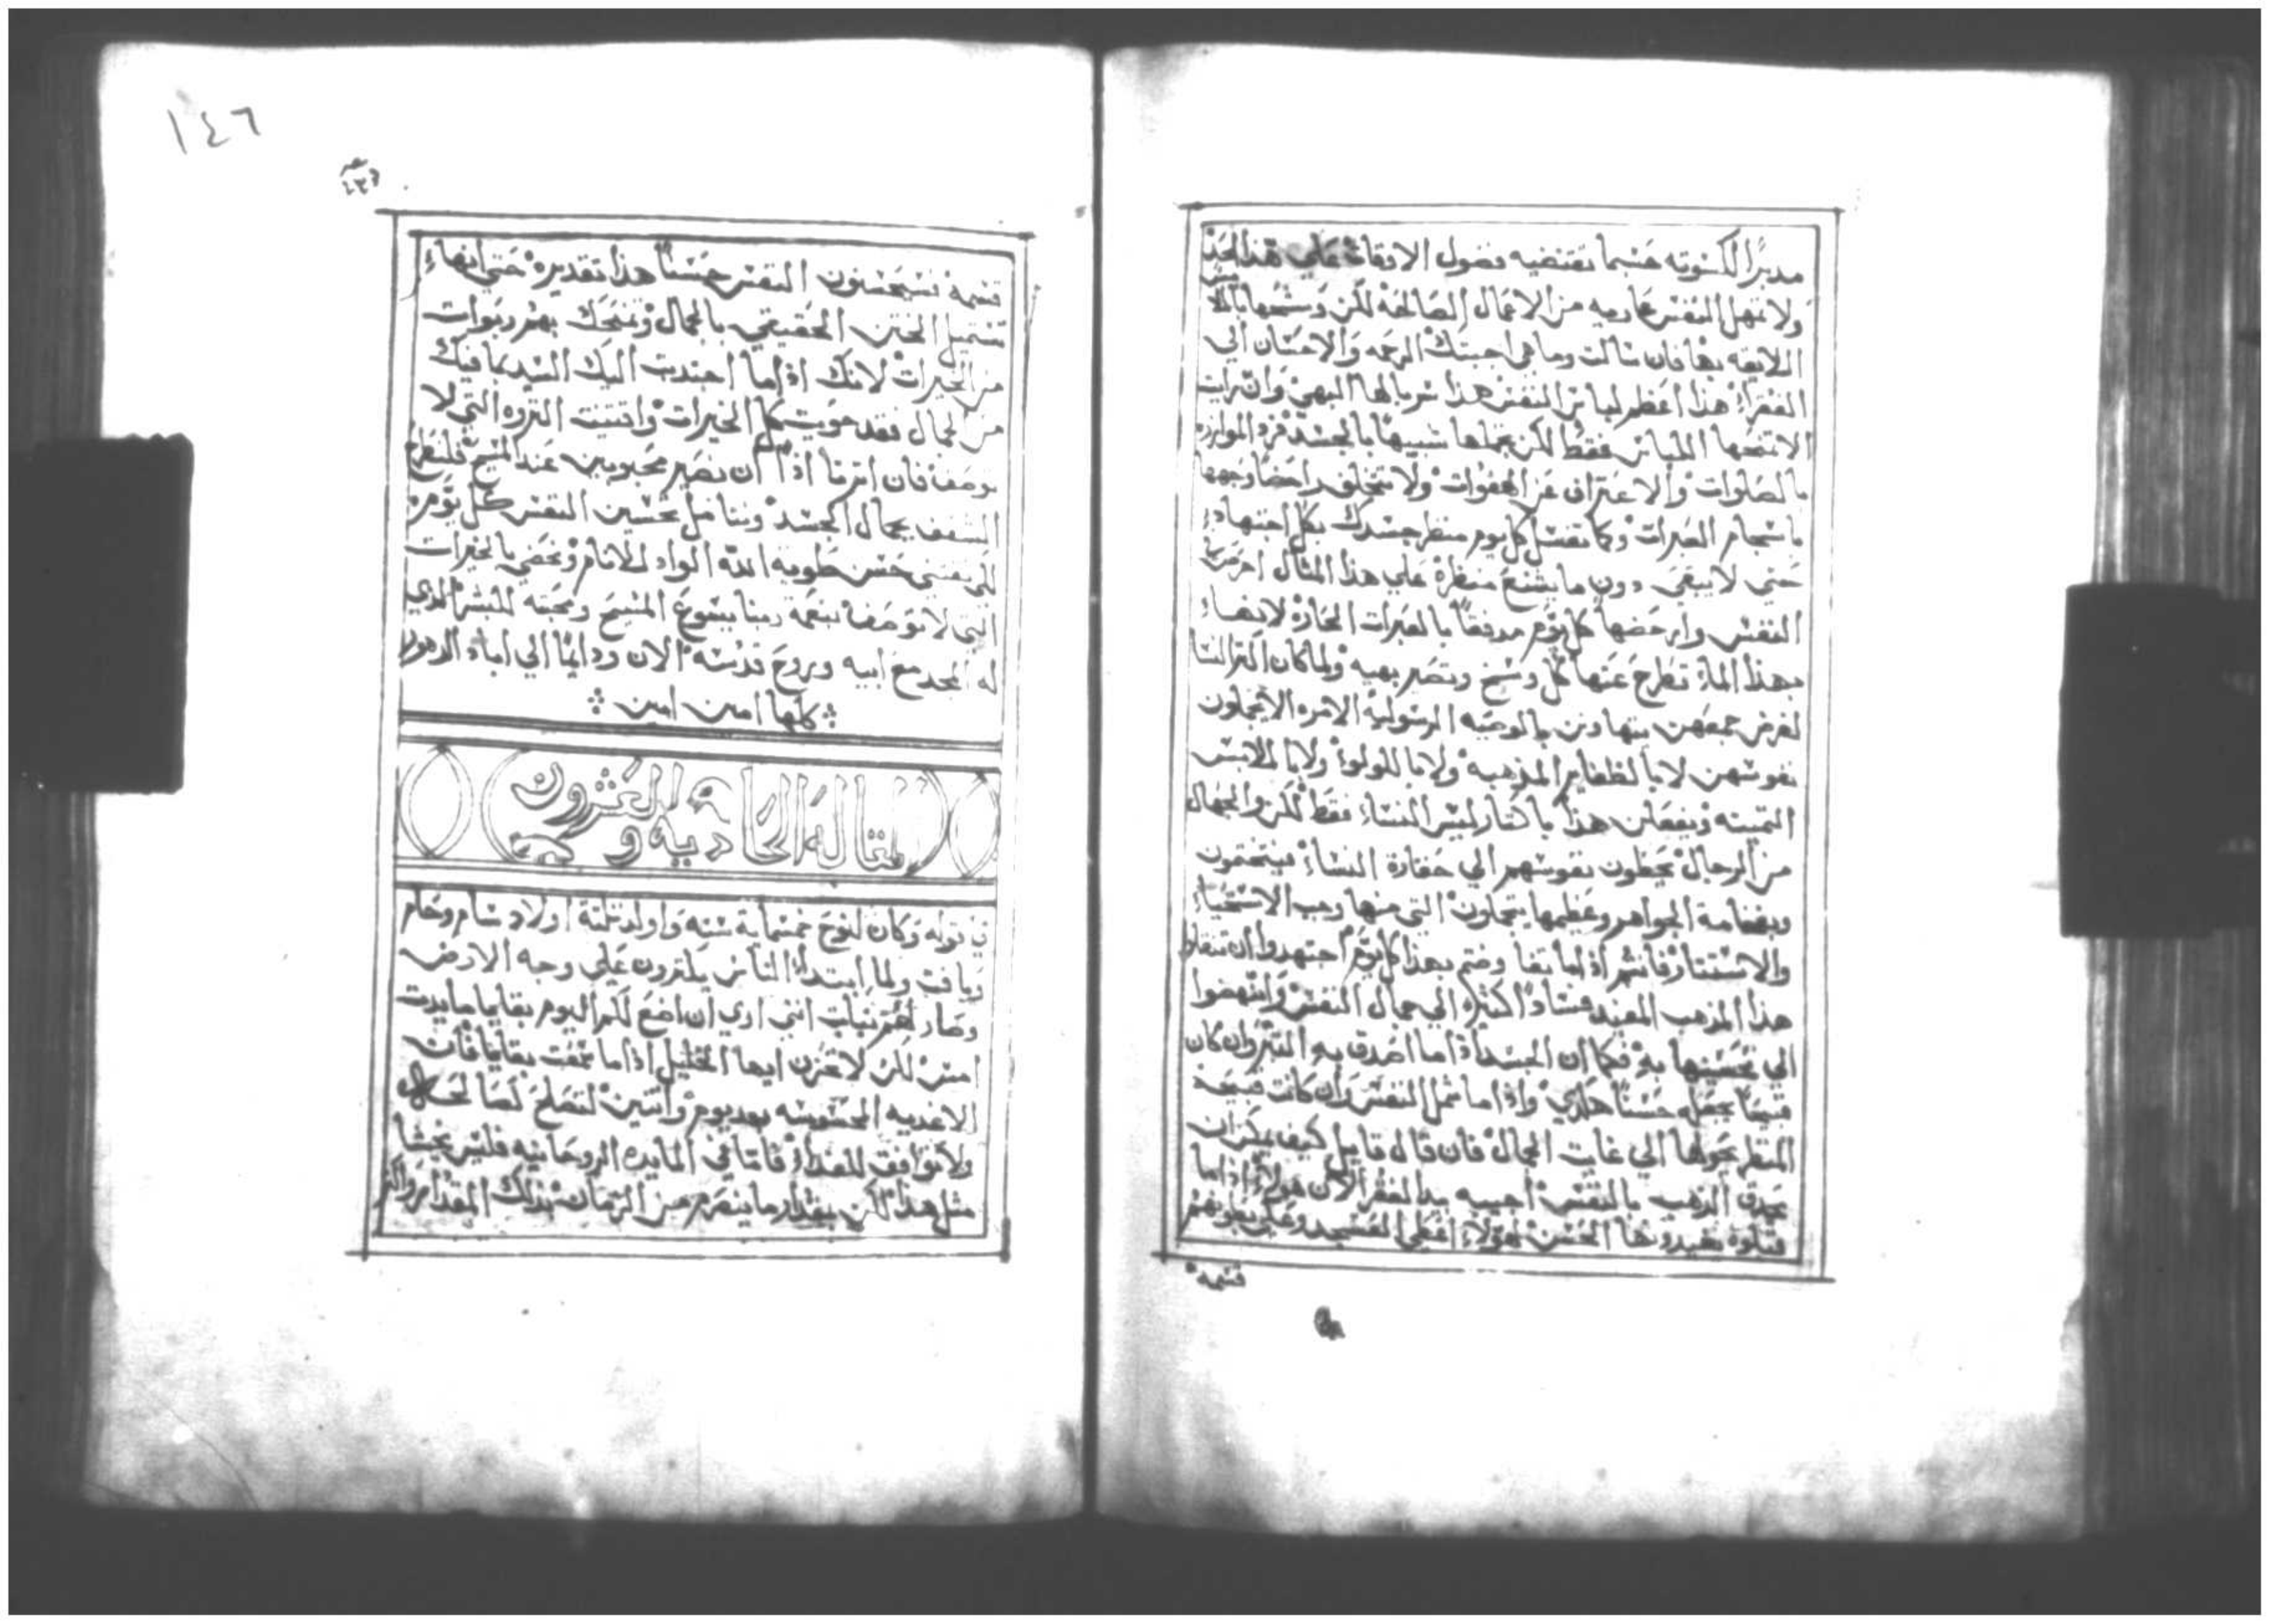 مدبرًا لكسوته حسبما تقتضيه فصول الاوقات علي هذا الحد
ولا تمهل النفس عاريه من الاعمال الصالحة لكن وسمها بالملابس
اللايقه بها فان سالت وما هي اجبتك الرحمه والاحسان الي
الفقراء هذا اعظم لباس النفس هذا سربالها البهي وان رات
الا تمنحها اللباس فقط لكن تجملها شبيهًا بالجسد فزد الموازره
بالصلوات والاعتراف عن الهفوات ولا تتخلف راحضا وجهها
باسجام العبرات وكما تغسل كل يوم منظر جسدك بكل اجتهاد
حتي لا يبقي دون ما يشنع منظره علي هذا المثال احرص
النفس وارحضها كل يوم مدفقًا بالعبرات الحارة لانها
بهذا الماء تطرح عنها كل وسخ وتصير بهيه ولما كان اكثر النسا
لفرض جمعهن يتهاونن بالوصيه الرسولية الامره الا يجملون
نفوسهن لا بالظفاير المذهبه ولا باللولوء ولا بالملابس
الثمينه ويفعلن هذا باكثار ليس النساء فقط لكن والجهال
من الرجال يحطون نفوسهم الي حقارة النساء فيتختمون
وبفخامة الجواهر وعظمها يتجملون التي منها وجب الاستحياء
والاستتار فانتم اذا ما تقا وضتم بهذا كل يوم اجتهدوا ان تنقلوا
هذا المذهب المفيد فسادًا كثيرا الي جمال النفس وانهضوا
الي تحسينها به فكما ان الجسد اذا ما احدق به التبر وان كان
قبيحًا يجعله حسنًا هكذي واذا ما شمل النفس وان كانت قبيحة
المنظر يحولها الي غايت الجمال فان قال قايل كيف يمكن ان
يحدق الذهب بالنفس اجيبه بيد الفقر الان هولاء اذا ما
قبلوه يفيدونها الحسن لهؤلاء اعطي العسجد وعلي بطونهم
قسمه
١٤٦
قسمه فسيحسنون النفس حسنًا هذا تقديره حتي انها
تستميل الختن الحقيقي بالجمال وتمنحك بهن ربوات
من الخيرات لانك اذا ما اجتدبت اليك السيد بما فيك
من الجمال فقد حويت كل الخيرات واقتنيت الثروه التي لا
توصف فان اثرنا اذًا ان نصير محبوبين عند المسيح فلنطرح
الشغف بجمال الجسد ونتامل تحسين النفس كل يوم
لكي يقتني حسن طويه الله الواد للانام ونحضي بالخيرات
التي لا توصف بنعمة ربنا يسوع المسيح ومحبته للبشر الذي
له المجد مع ابيه وروح قدسه الان ودايمًا الي اباد الدهور
كلها امين امين
المقالة الحادية والعشرون
في قوله وكان لنوح خمسماية سنه واولد ثلثة اولاد سام وحام
ويافث ولما ابتداء الناس يكثرون علي وجه الارض
وصار لهم بنات انني اري ان اضع لكم اليوم بقايا مايدت
امس لكن لا تحزن ايها الخليل اذا ما سمعت بقايا فان
الاغديه المحسوسه بعد يوم واثنين لتصلح لصالحـ
ولا توافق للغداء فاما في المايده الروحانيه فليس يخشا
مثل هذا لكن بمقدار ما ينصرم من الزمان بذلك المقدار واكثر